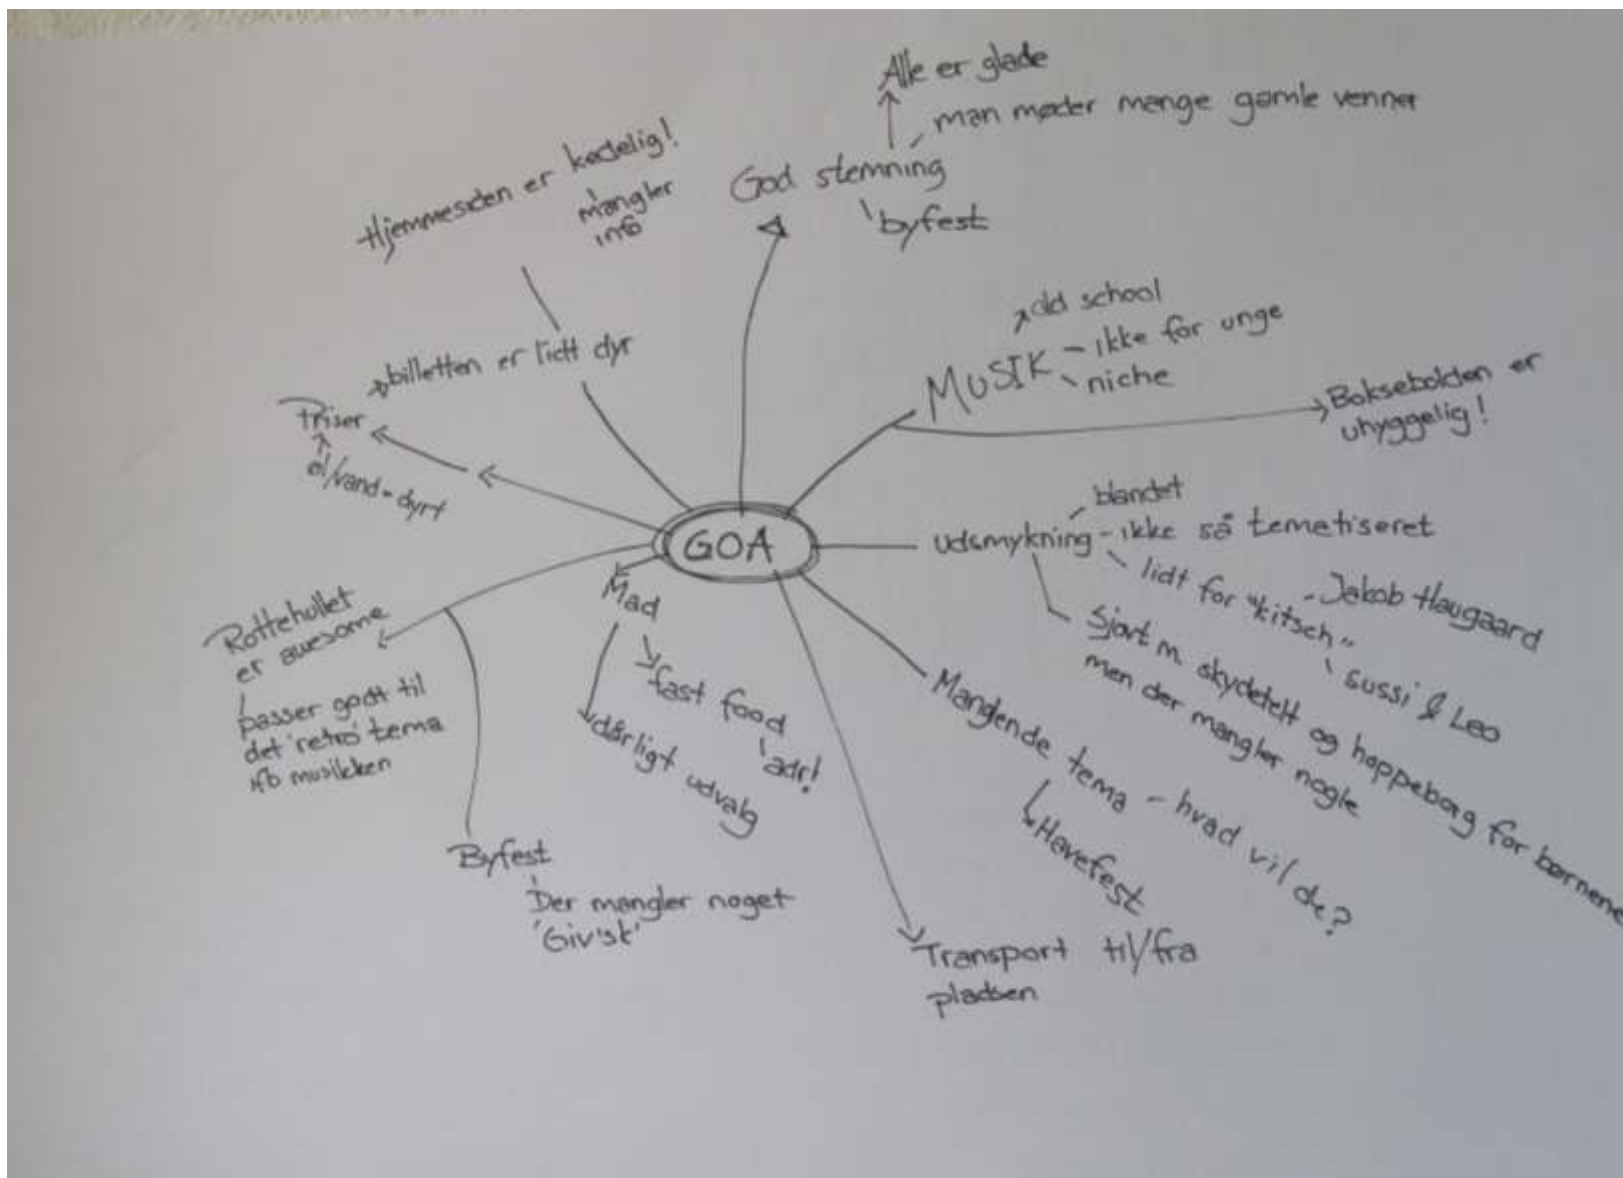 GOA
God stemning
Alle er glade
man møder mange gamle venner
byfest
MUSIK
old school
ikke for unge
niche
Boksebolden er
uhyggelig!
udsmykning
blandet
ikke så temetiseret
lidt for "kitsch"
Jakob Haugaard
sussi & Leo
Sjovt m. skydetelt og hoppeborg for børnene
men der mangler nogle
Manglende tema - hvad vil de?
Havefest
Transport til/fra
pladsen
Mad
fast food
adr!
dårligt udvalg
Byfest
Der mangler noget
'Giv'sk'
Rottehullet
er awesome
passer godt til
det 'retro' tema
ifb musikken
Priser
øl/vand = dyrt
billetten er lidt dyr
Hjemmesiden er kedelig!
mangler
info